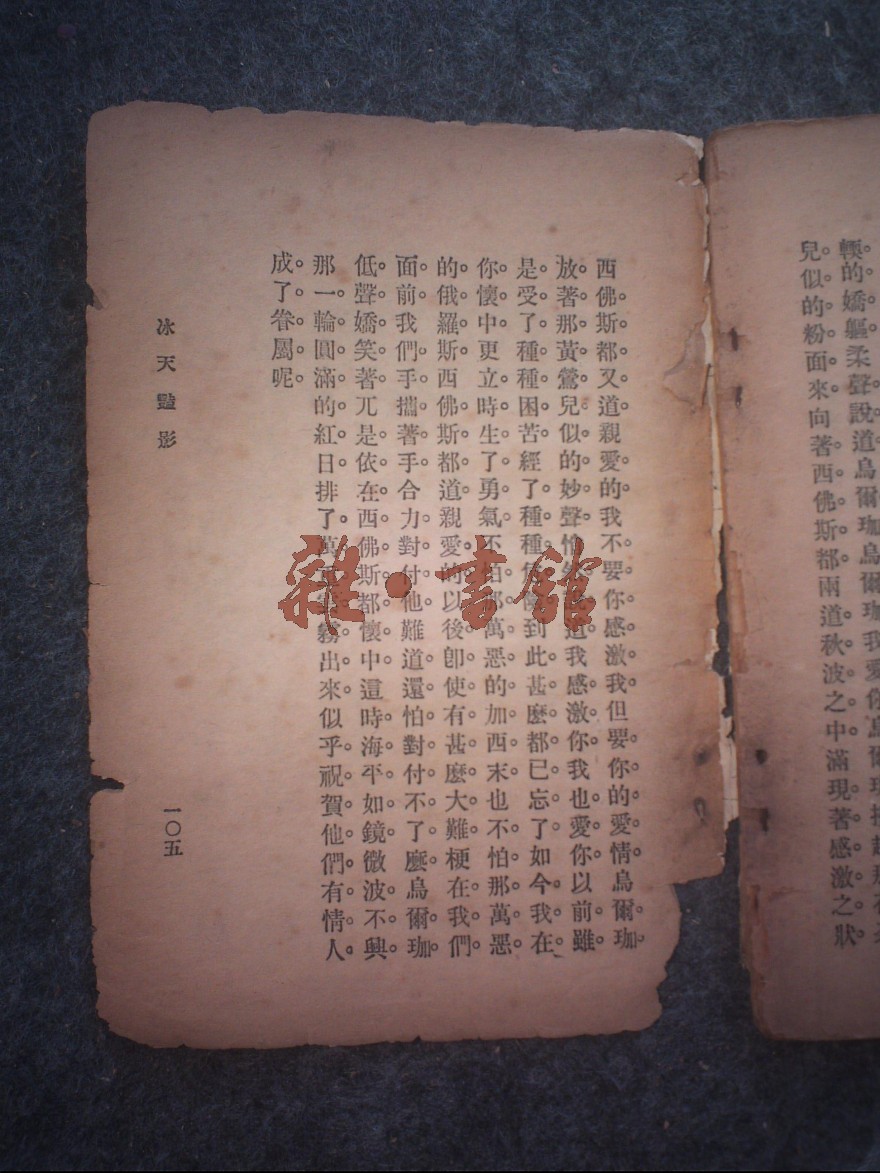 輭的嬌軀柔聲說道烏爾珈烏爾珈我愛你烏爾
兒似的粉面來向著西佛斯都兩道秋波之中滿現著感激之狀
西佛斯都又道親愛的我不要你感激我但要你的愛情烏爾珈
放著那黃鶯兒似的妙聲道我感激你我也愛你以前雖
是受了種種困苦經了種種到此甚麼都已忘了如今我在
你懷中更立時生了勇氣不怕那萬惡的加西末也不怕那萬惡
的俄羅斯西佛斯都道親愛的以後卽使有甚麼大難梗在我們
面前我們手攜著手合力對付他難道還怕對付不了麼烏爾珈
低聲嬌笑著兀是依在西佛斯都懷中這時海平如鏡微波不興
那一輪圓滿的紅日排了萬霧出來似乎祝賀他們有情人
成了眷屬呢
冰天豔影
一〇五
雜·書館